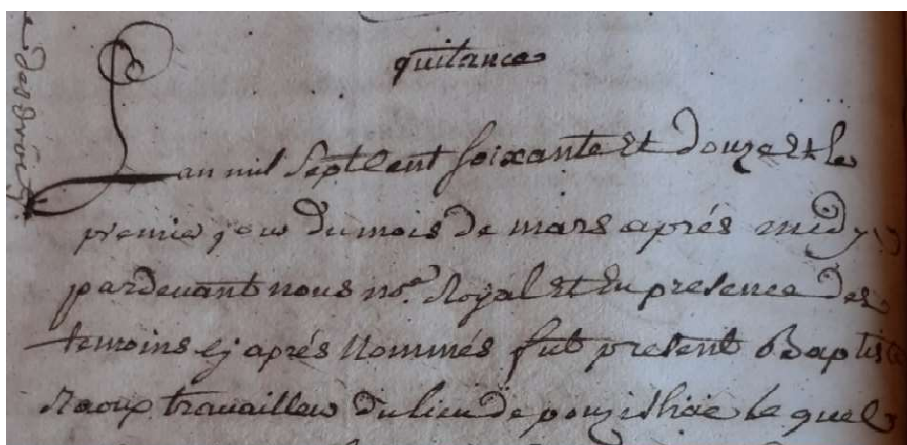 quitance
Lan mil Sept Cent soixante et douze et le
premier jour du mois de mars aprés midy
pardevant nous no.re Royal et En presence des
temoins cy aprés Nommés fut present Baptiste
Raoux travailleur du lieu de pouzilhiac le quel